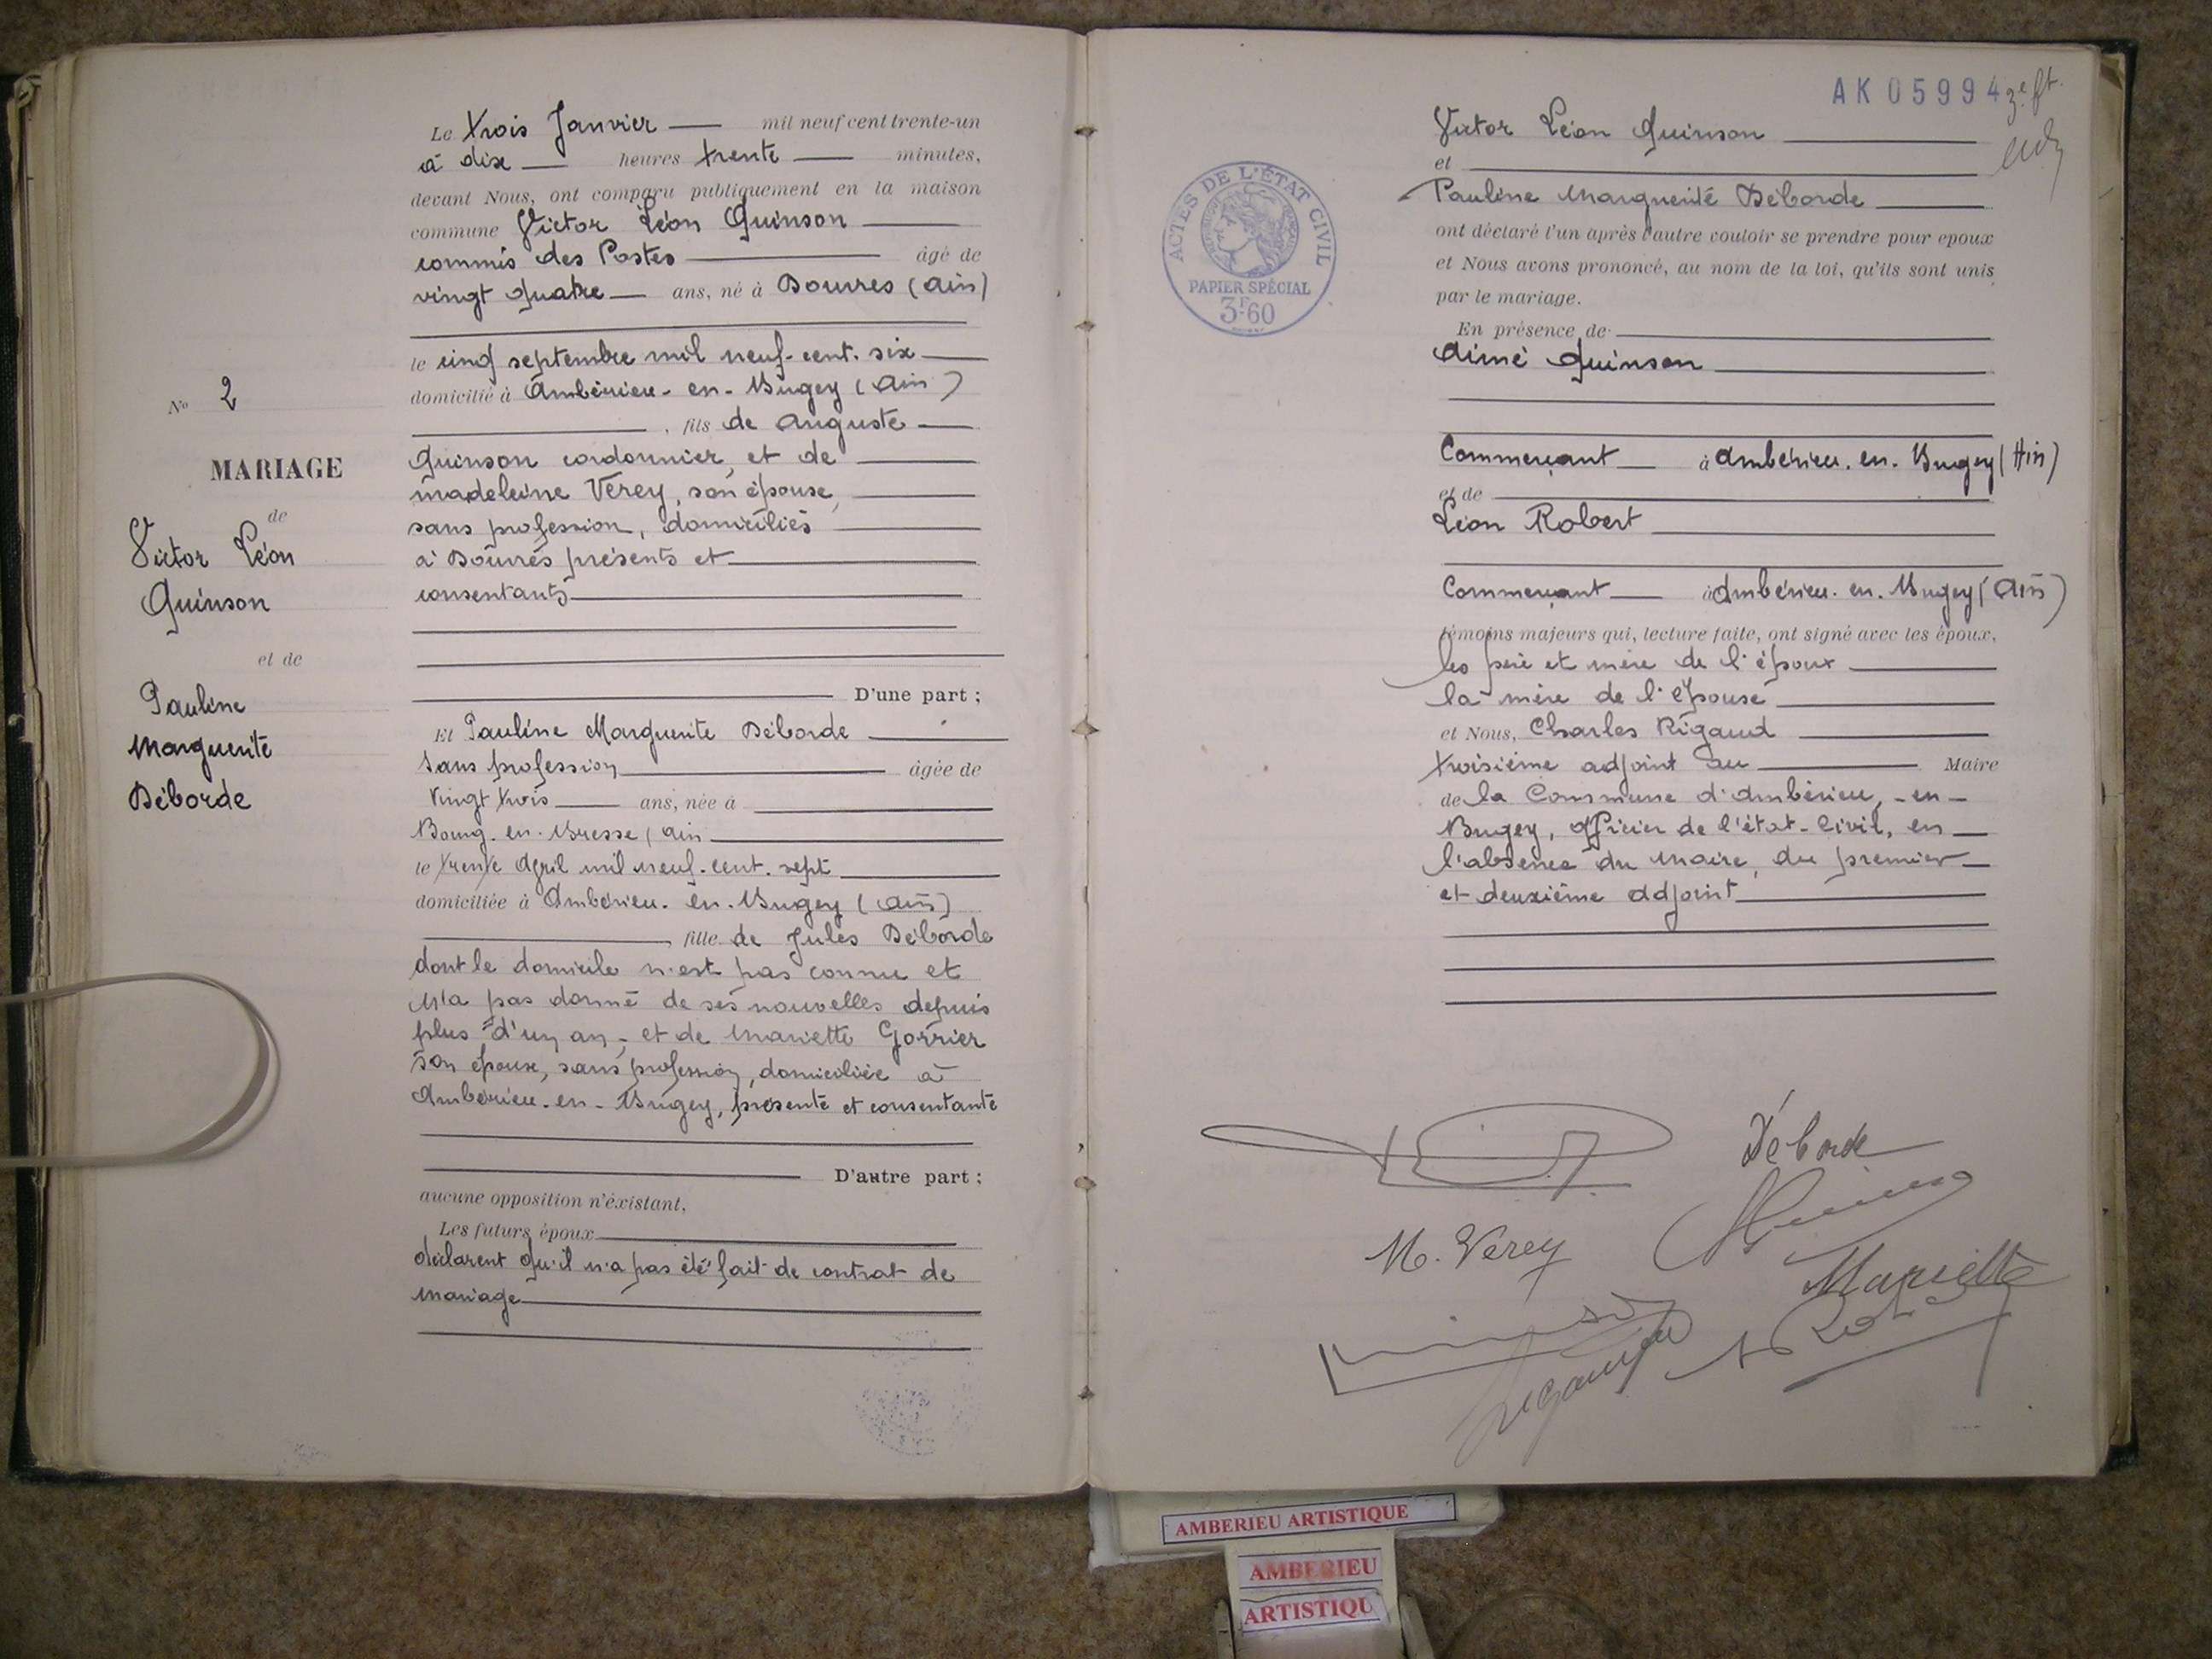 Le trois Janvier mil neuf cent trente-un
à dix heures trente minutes,
devant Nous, ont comparu publiquement en la maison
commune Victor Léon Quinson
commis des Postes âgé de
vingt quatre ans, né à Douvres (Ain)
le cinq septembre mil neuf-cent. six
domicilié à Ambérieu-en-Bugey (Ain)
, fils de Auguste
Quinson cordonnier, et de
madeleine Verey, son épouse,
sans profession, domiciliés
à Douvres présents et
consentants
D'une part ;
Et Pauline Marguerite Déborde
sans profession âgée de
vingt trois ans, née à
Bourg. en. Bresse (Ain
le trente Avril mil neuf. cent. sept
domiciliée à Ambérieu. en. Bugey (Ain)
, fille de Jules Déborde
dont le domicile n'est pas connu et
n'a pas donné de ses nouvelles depuis
plus d'un an, et de Mariette Gorrier
son épouse, sans profession, domiciliée à
Ambérieu-en-Bugey, présente et consentante
D'autre part ;
aucune opposition n'éxistant,
Les futurs époux
déclarent qu'il n'a pas été fait de contrat de
mariage
No 2
MARIAGE
de
Victor Léon
Quinson
et de
Pauline
Marguerite
Déborde
AK 05994 3e ft.
Victor Léon Quinson
et
Pauline Marguerite Déborde
ont déclaré l'un après l'autre vouloir se prendre pour epoux
et Nous avons prononcé, au nom de la loi, qu'ils sont unis
par le mariage.
En présence de
Aimé Quinson
Commerçant à Ambérieu. en. Bugey (Ain)
et de
Léon Robert
Commerçant à Ambérieu. en. Bugey (Ain)
témoins majeurs qui, lecture faite, ont signé avec les époux,
les père et mère de l'époux
la mère de l'épouse
et Nous, Charles Rigaud
troisième adjoint au Maire
de la Commune d'Ambérieu,-en-
Bugey, officier de l'état-Civil, en
l'absence du Maire, du premier
et deuxième adjoint
ACTES DE L'ÉTAT CIVIL
PAPIER SPÉCIAL
3F.60
Déborde
M. Verey
Mariette
AMBERIEU ARTISTIQUE
AMBERIEU
ARTISTIQU